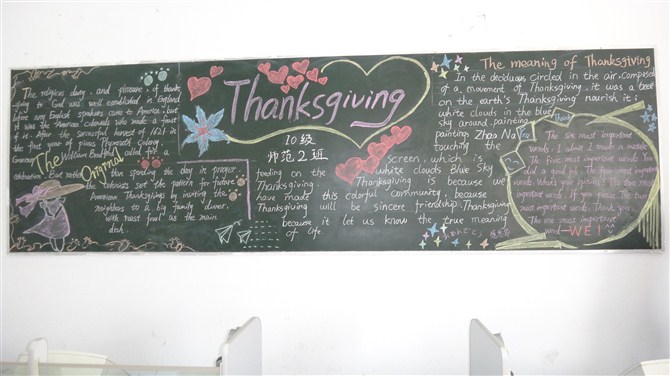 The religious duty, and pleasure, of thanks
giving to God was well established in England
before any English speakers came to America, but
it was the American colonials who made a feast
of it in. After the successful harvest of 1621 in
the first year of Plymouth Colony,
Governor William Bradford called for a
celebration. But rather than spending the day in prayer
the colonists set the pattern for future
American Thanksgiving by inviting the
neighbors to a big family dinner,
with roast fowl as the main
dish.
The Original
Thanksgiving
10级
师范2班
feeding on the screen, which is
Thanksgiving. white clouds Blue Sky
Thanksgiving is because we
have made this colorful community, because
Thanksgiving will be sincere friendship. Thanksgiving
because it let us know the true meaning
of life
The meaning of Thanksgiving
In the deciduous circled in the air, composed
of a movement of Thanksgiving, it was a tree
on the earth's Thanksgiving nourish it;
white clouds in the blue
sky around painting,
painting Zhao Na
touching the
Thank You
The six most important
words: I admit I made a mistake
The five most important words: You
did a good job. The four most important
words: What's your opinion? The three most
important words: If you please. The two
most important words: Thank you.
The one most important
word—WE!